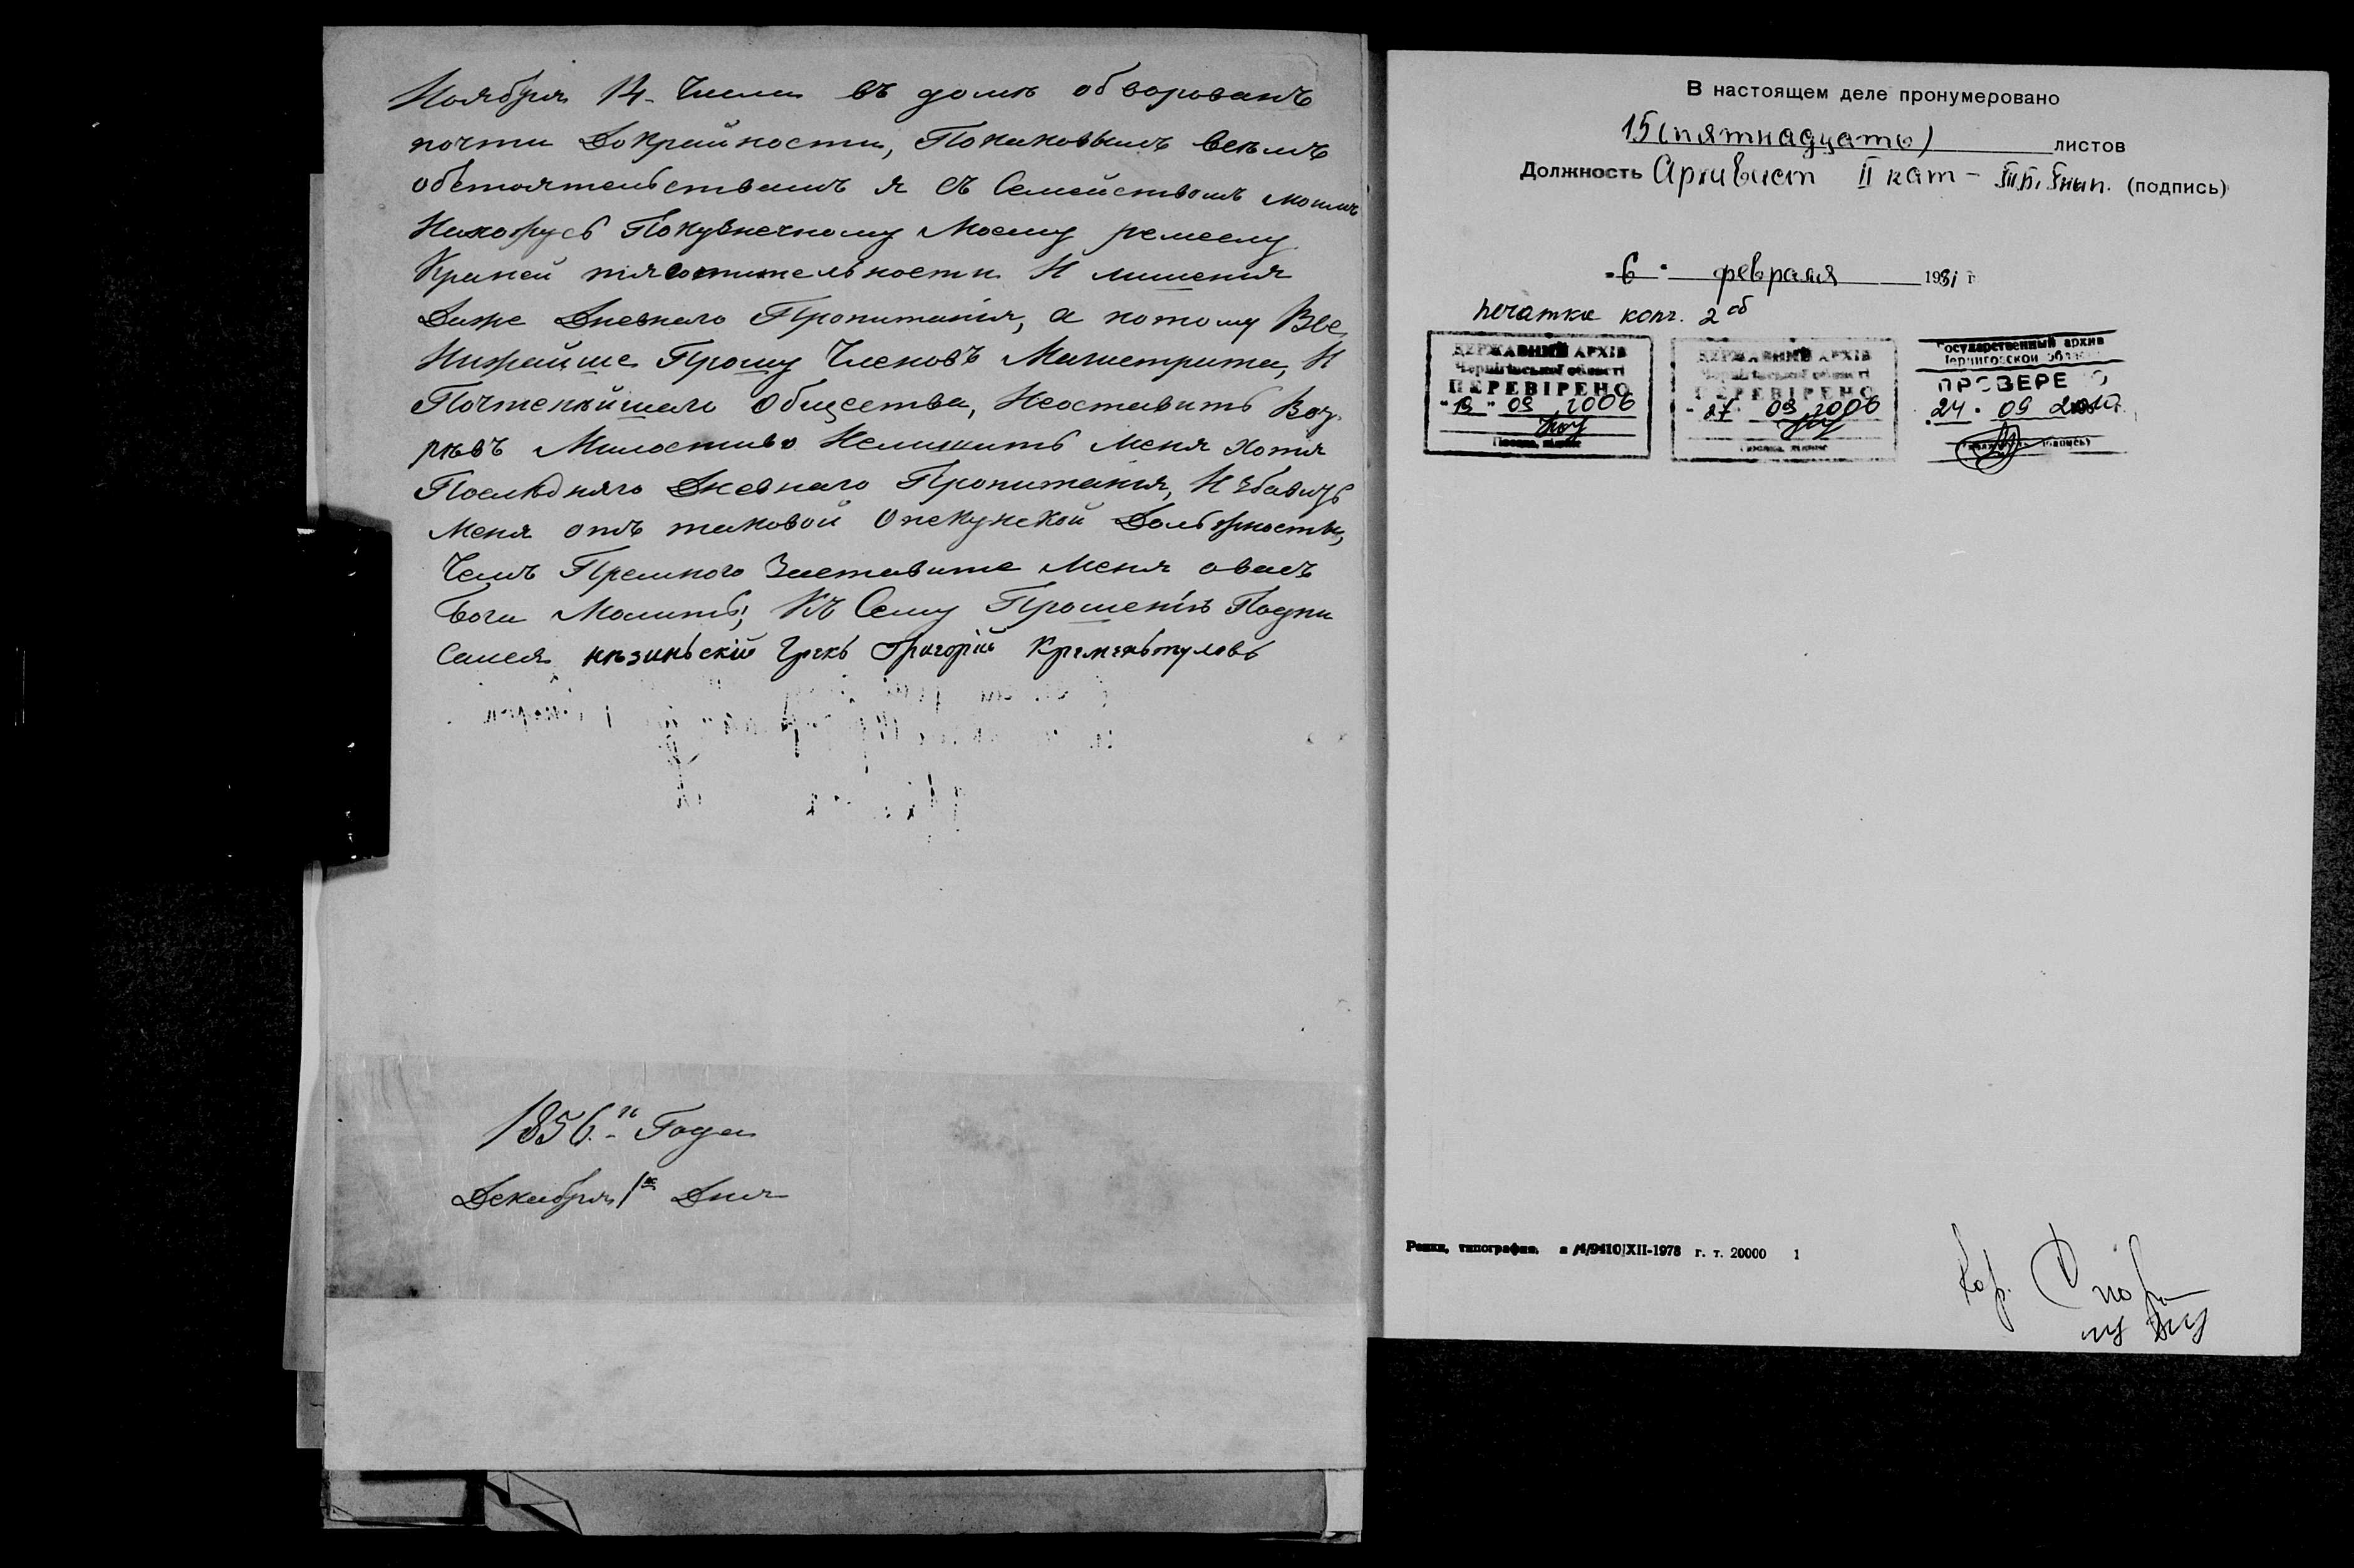 Ноября 14. Числа въ домѣ обворованъ
почти Докрайности, Покаковымъ всѣмъ
обстоятельствамъ я съ Семействомъ моимъ
Нахожусь Покузнечному Моему ремеслу
Крайней тягостительности И лишения
Даже Дневнаго Пропитанія, а потому Все
Нижайше Прошу Членовъ Магистрата, И
Почтенѣйшаго Общества, Неоставить Воз
рѣвъ Милостиво Нелишить меня хотя
Послѣдняго Дневнаго Пропитанія, Избавить
Меня отъ таковой Опекунской Дольжности,
Чемъ Премного Заставите Меня овасъ
Бога Молить; Къ Сему Прошенію Подпи
сался нѣзиньскій Грекъ Григорій Кременьтуловъ
1856.го Года
Декабря 1го Дня
В настоящем деле пронумеровано
15 (пятнадцать) листов
Должность Архивист II кат – (подпись)
"6" февраля 1981 г
печатка коп. 2 об
ДЕРЖАВНИЙ АРХІВ
Чернігівської області
ПЕРЕВІРЕНО
"19" 09 2006
Посада, підпис
ДЕРЖАВНИЙ АРХІВ
Чернігівської області
ПЕРЕВІРЕНО
"27" 09 2006
Посада, підпис
Государственный архив
Черниговской области
ПРОВЕРЕНО
24. 09
Ренки, типография. 1/9410/XII-1978 г. т. 20000 1